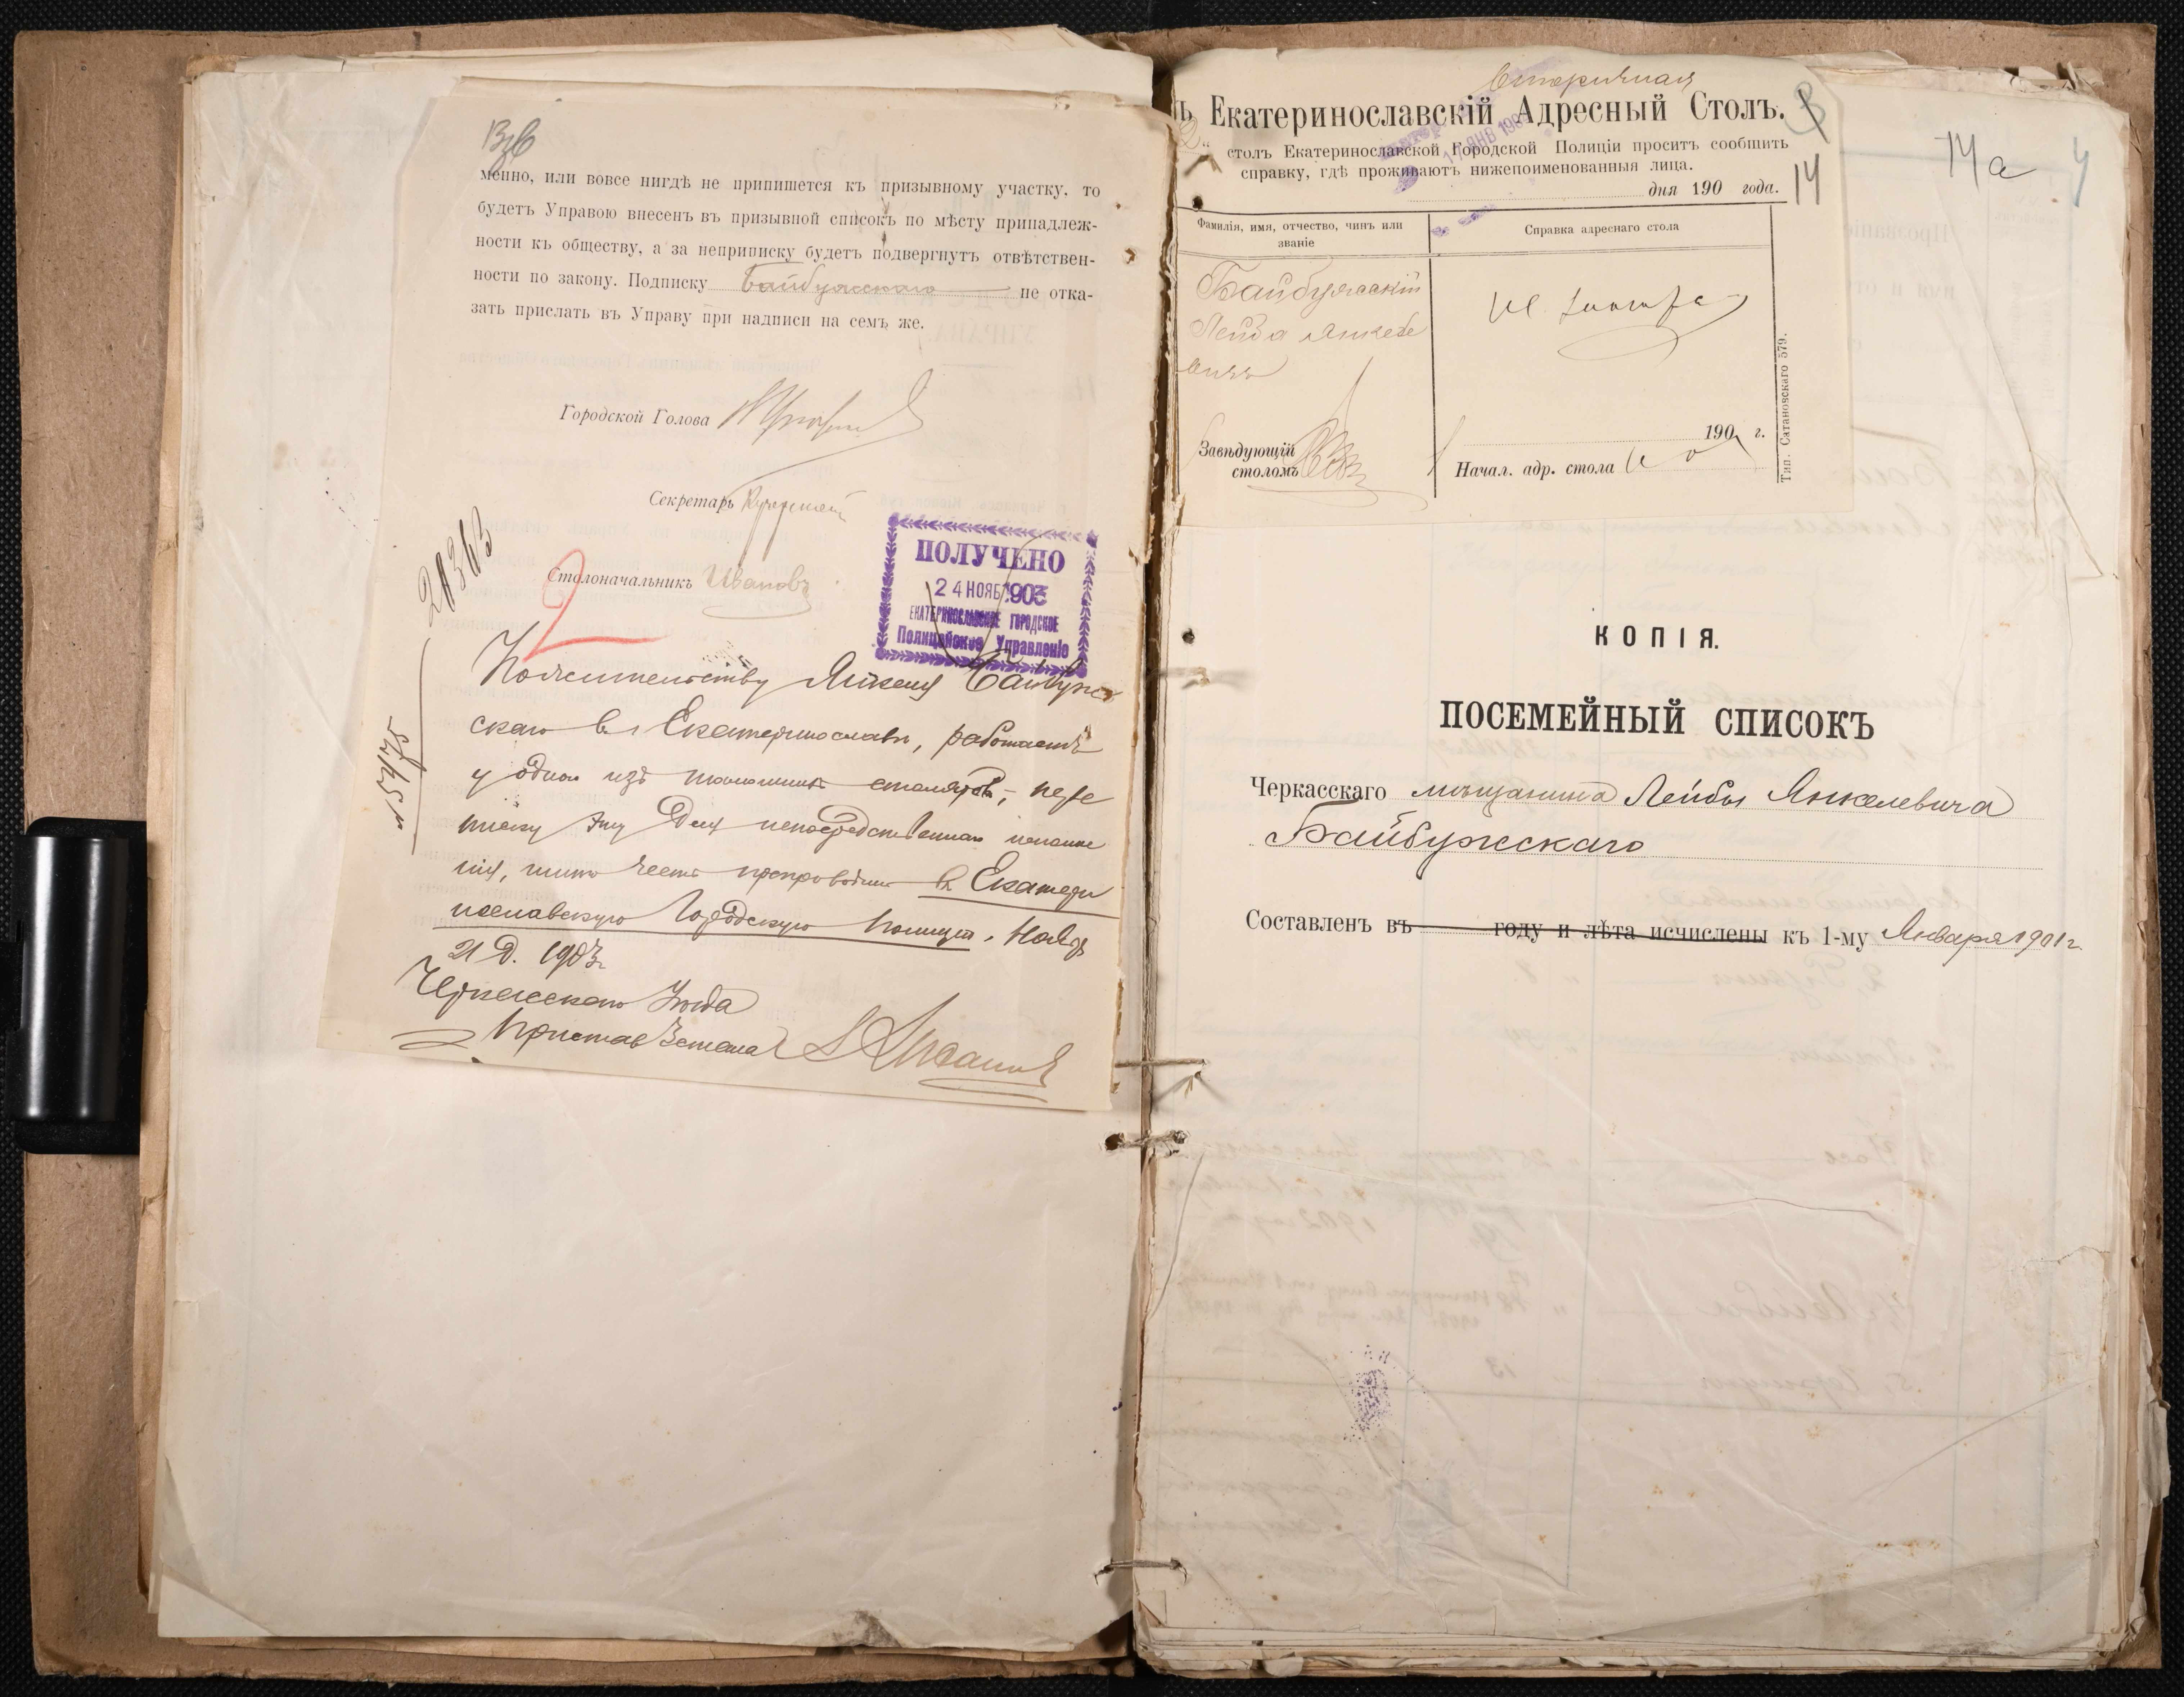 менно, или вовсе нигдѣ не припишется къ призывному участку, то
будетъ Управою внесенъ въ призывной списокъ по мѣсту принадлеж-
ности къ обществу, а за неприписку будетъ подвергнутъ отвѣтствен-
ности по закону. Подписку Байбужскаго не отка-
зать прислать въ Управу при надписи на семъ же.
Городской Голова
Секретарь
Столоначальникъ Ивановъ
20363
2
ПОЛУЧЕНО
24 НОЯБ 1903
ЕКАТЕРИНОСЛАВСКОЕ ГОРОДСКОЕ
Полицейское Управленіе
По жительству Янкеля Байбуж
скаго въ Екатеринославѣ, работаетъ
у одного изъ столяровъ, пере
писку эту для непосредственнаго исполне
нія, имѣю честь препроводить въ Екатери
нославскую Городскую Полицію. Нояб
21 д. 1903 г.
Черкасскаго Уѣзда
Приставъ 3 стана
Вторичная
Ъ Екатеринославскій Адресный Столъ.
столъ Екатеринославской Городской Полиціи проситъ сообщить
справку, гдѣ проживаютъ нижепоименованныя лица.
дня 190 года.
14
Фамилія, имя, отчество, чинъ или
званіе
Справка адреснаго стола
Байбужскій
Лейба Янкеле
вичъ
Завѣдующій
столомъ
190 г.
Начал. адр. стола
Тип. Сатановскаго 579.
14а
4
КОПІЯ.
ПОСЕМЕЙНЫЙ СПИСОКЪ
Черкасскаго мѣщанина Лейбы Янкелевича
Байбужскаго
Составленъ въ году и лѣта исчислены къ 1-му Января 1901 г.